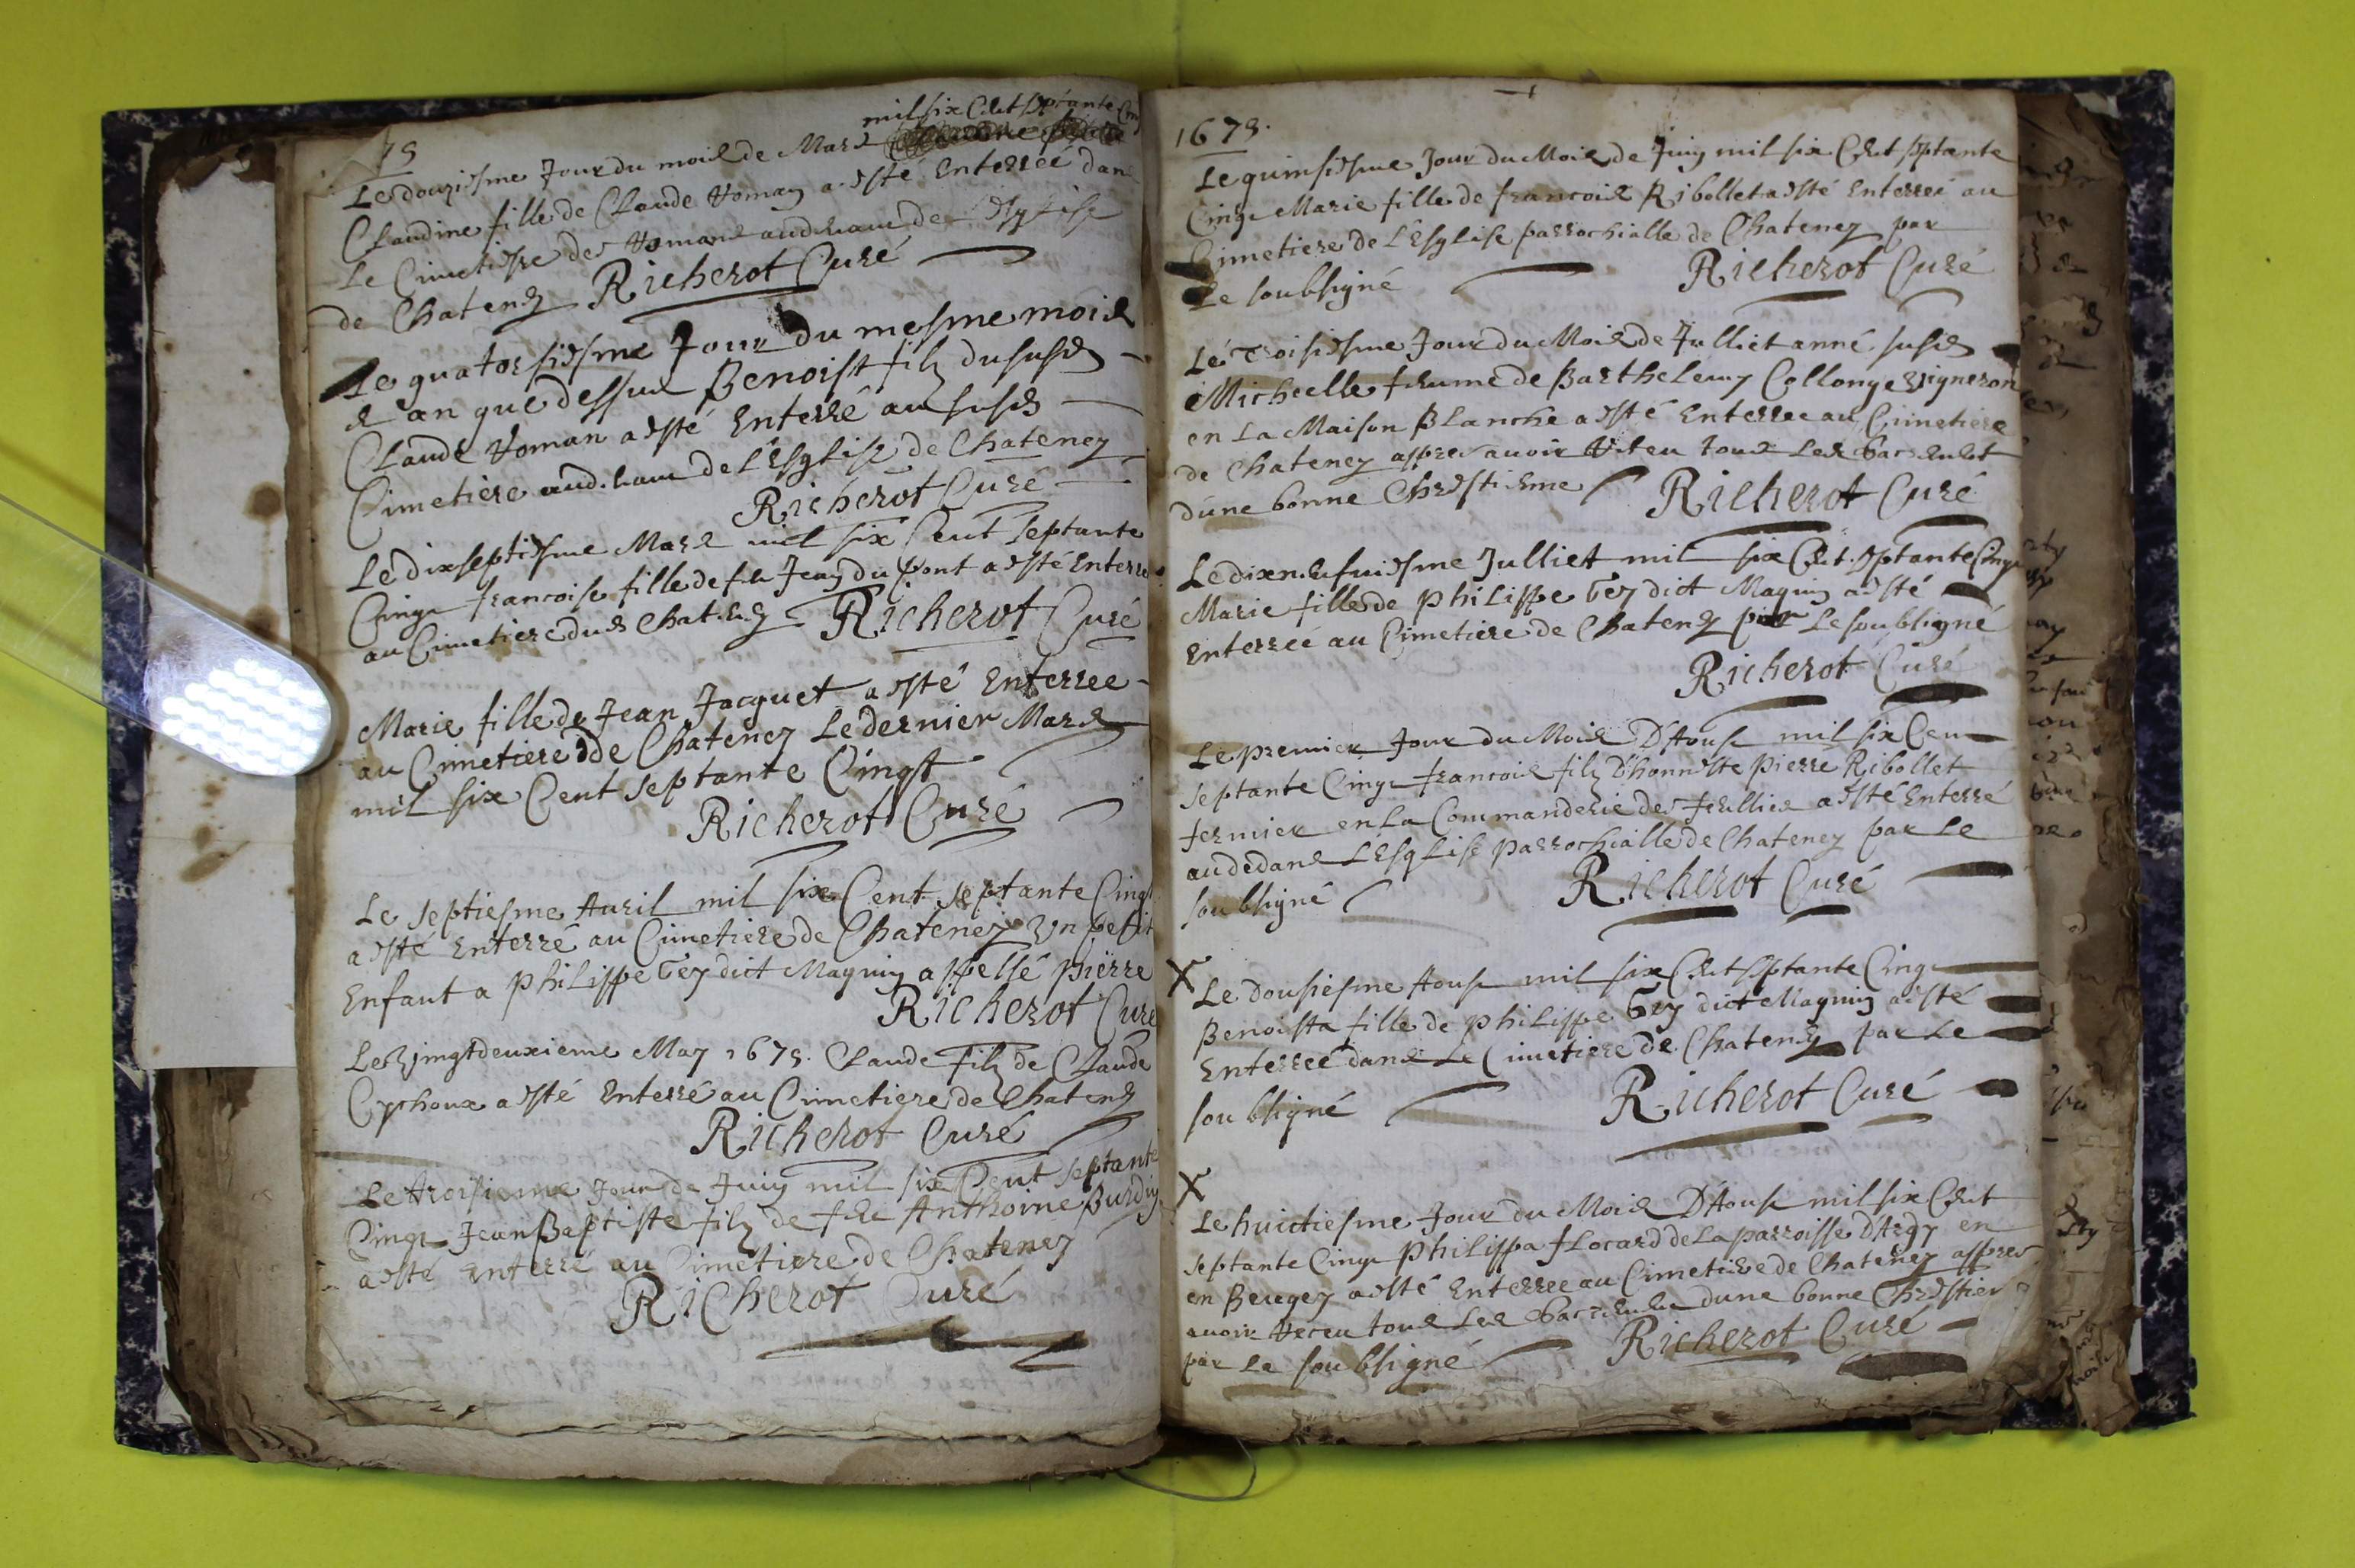 75
mil six Cent septante Cinq
Le douziesme Jour du mois de Mars
Claudine fille de Claude Roman a esté Enterreé dans
Le Cimetiere des Romans audevant de Esglise
de Chateney Richerot Curé
Le quatorsiesme Jour du mesme mois
& an que dessus Benoist filz du susd
Claude Roman a esté Enterré au susd
Cimetiere aud.vant de L'Esglise de Chateney
Richerot Curé
Le dixseptiesme Mars mil six Cent septante
Cinq francoise fille de feu Jean du pont a esté Enterré
au Cimetiere dud Chateney Richerot Curé
Marie fille de Jean Jacquet a esté Enterree
au Cimetiere de Chateney Le dernier Mars
mil six Cent septante Cinqt
Richerot Curé
Le septiesme Auril mil six Cent septante Cinqt
a esté Enterré au Cimetiere de Chateney Vn petit
Enfant a philippe Gey dict Magnin appellé pierre
Richerot Curé
Le Vingtdeuxieme May 1675. Claude filz de Claude
Cychoux a esté Enterré au Cimetiere de Chateney
Richerot Curé
Le troisieme Jour de Juin mil six Cent septante
Cinq Jean Baptiste filz de feu Anthoine Burdin
a esté enterré au Cimetiere de Chateney
Richerot Curé
1675.
Le quinsiesme Jour du Mois de Juin mil six Cent septante
Cinq Marie fille de francois Ribollet a esté Enterreé au
Cimetiere de L'Esglise parrochialle de Chateney par
Le soubsigné Richerot Curé
Le Troisiesme Jour du Mois de Julliet anné susd
Micheelle femme de Barthelemy Collonge Vigneron
en La Maison Blanche a esté Enterree au Cimetiere
de Chateney appres auoir Receu tous Les Sacrements
d'une bonne Chrestienne Richerot Curé
Le dixneufuiesme Julliet mil six Cent septante Cinq
Marie fille de philippe Gey dict Magnin a esté
Enterreé au Cimetiere de Chateney par Le soubsigné
Richerot Curé
Le premier Jour du Mois D'Aoust mil six Cent
septante Cinq francois filz D'honneste pierre Ribollet
fermier en La Commanderie des feullies a esté Enterré
audedans L'Esglise parrochialle de Chateney par Le
soubsigné Richerot Curé
X Le dousiesme Aoust mil six Cent septante Cinq
Benoista fille de philippe Gey dict Magnin a esté
Enterreé dans Le Cimetiere de Chateney par Le
soubsigné Richerot Curé
X
Le huictiesme Jour du Mois D'Aoust mil six Cent
septante Cinq philippa flocard de La parroisse D'Argy en
en Beugey a esté Enterree au Cimetiere de Chateney appres
auoir Receu tous Les Sacremens dune bonne Chrestien
par Le soubsigné Richerot Curé